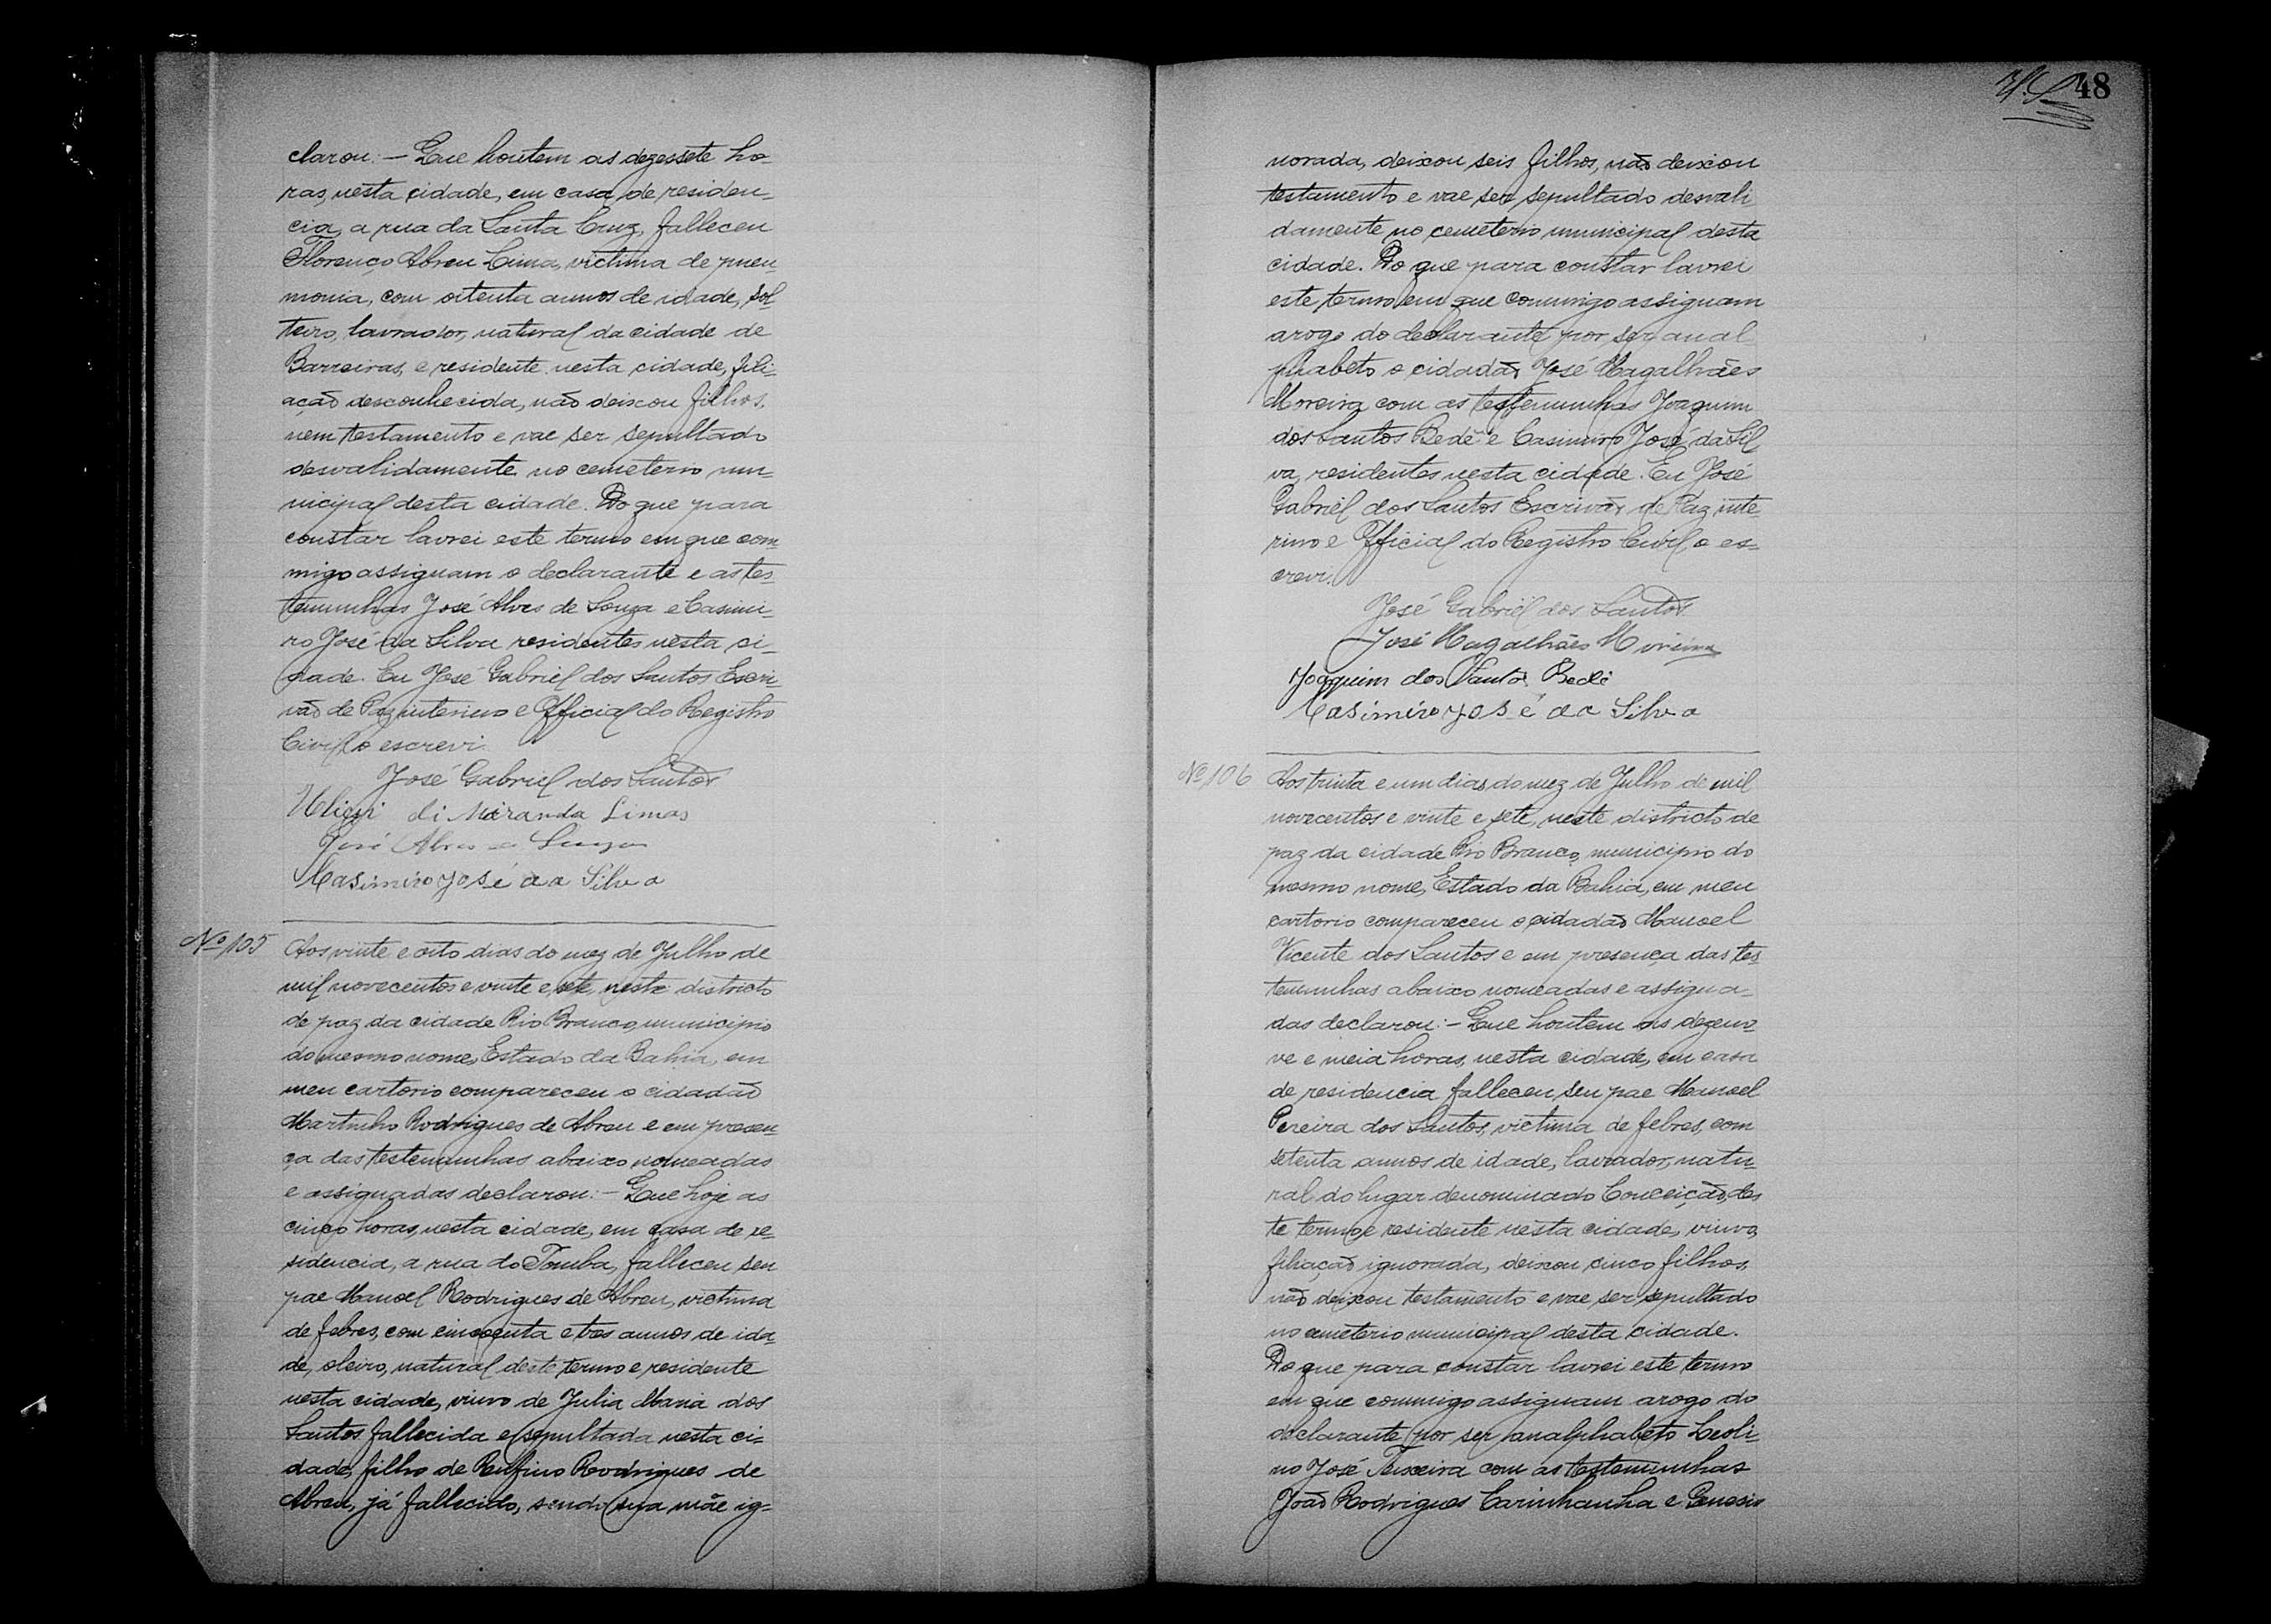 clarou:— Que hontem as dezessete ho-
ras, nesta cidade, em casa de residen-
cia, a rua da Santa Cruz, falleceu
Florenço Abreu Lima, victima de pneu-
monia, com oitenta annos de idade, sol
teiro, lavrador, natural da cidade de
Barreiras, e residente nesta cidade, fili-
ação desconhecida, não deixou filhos,
nem testamento e vae ser sepultado
desvalidamente no cemeterio mu-
nicipal desta cidade. Do que para
constar lavrei este termo em que com-
migo assignam o declarante e as tes-
temunhas José Alves de Souza e Casimi-
ro José da Silva residentes nesta ci-
dade. Eu José Gabriel dos Santos Escri-
vão de Paz interino e Official do Registro
Civil, o escrevi.
José Gabriel dos Santos
di Miranda Limas
José
Casimiro José da Silva
Nº 105
Aos vinte e oito dias do mez de Julho de
mil novecentos e vinte e sete, neste districto
de paz da cidade Rio Branco, municipio
do mesmo nome, Estado da Bahia, em
meu cartorio compareceu o cidadão
Martinho Rodrigues de Abreu e em presen-
ça das testemunhas abaixo nomeadas
e assignadas declarou:— Que hoje as
cinco horas, nesta cidade, em casa de re-
sidencia, a rua do Tomba, falleceu seu
pae Manoel Rodrigues de Abreu, victima
de febres, com cincoenta e tres annos de ida
de, oleiro, natural deste termo e residente
nesta cidade, viuvo de Julia Maria dos
Santos fallecida e sepultada nesta ci-
dade, filho de Rufino Rodrigues de
Abreu, já fallecido, sendo sua mãe ig-
48
norada, deixou seis filhos, não deixou
testamento e vae ser sepultado desvali
damente no cemeterio municipal desta
cidade. Do que para constar lavrei
este termo em que commigo assignam
arogo do declarante por ser anal
phabeto o cidadão José Magalhães
Moreira com as testemunhas Joaquim
dos Santos Bedê e Casimiro José da Sil
va, residentes nesta cidade. Eu José
Gabriel dos Santos Escrivão de Paz inte-
rino e Official do Registro Civil, o es-
crevi.
José Gabriel dos Santos
José Magalhães Moreira
Joaquim dos Santos Bedê
Casimiro José da Silva
Nº 106
Aos trinta e um dias do mez de Julho de mil
novecentos e vinte e sete, neste districto de
paz da cidade Rio Branco, municipio do
mesmo nome, Estado da Bahia, em meu
cartorio compareceu o cidadão Manoel
Vicente dos Santos e em presença das tes
temunhas abaixo nomeadas e assigna-
das declarou:— Que hontem as dezeno-
ve e meia horas, nesta cidade, em casa
de residencia falleceu seu pae Manoel
Pereira dos Santos, victima de febres, com
setenta annos de idade, lavrador, natu-
ral do lugar denominado Conceição, des
te termo, e residente nesta cidade, viuvo,
filiação ignorada, deixou cinco filhos,
não deixou testamento e vae ser sepultado
no cemeterio municipal desta cidade.
Do que para constar lavrei este termo
em que commigo assignam arogo do
declarante por ser analphabeto Leoli-
no José Teixeira com as testemunhas
João Rodrigues Carinhanha e Genesio